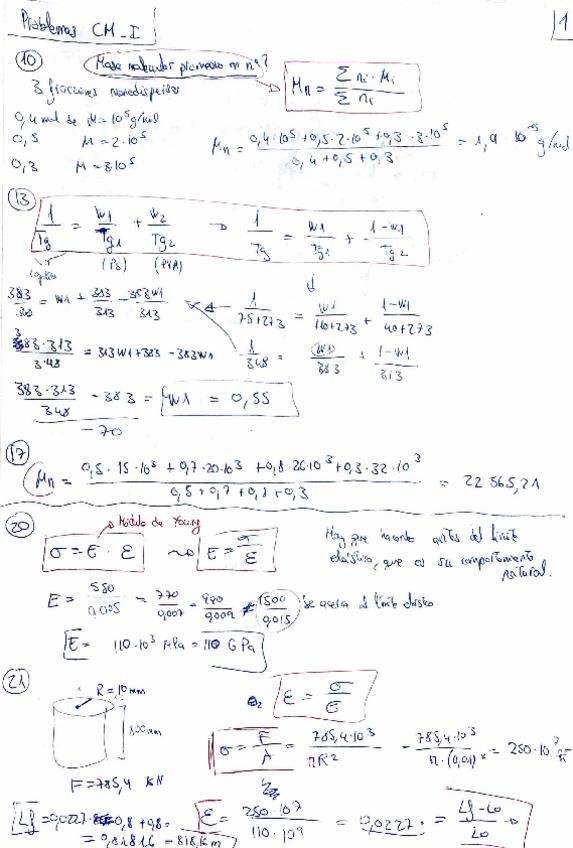 Problemas CM-I
1
10 Masa molecular promedio en nº?
Mn = Σ ni · Mi / Σ ni
3 fracciones monodispersas
0,4 mol de M = 10⁵ g/mol
0,5 M = 2·10⁵
0,3 M = 3·10⁵
Mn = 0,4·10⁵ + 0,5·2·10⁵ + 0,3·3·10⁵ / 0,4 + 0,5 + 0,3 = 1,9 10⁵ g/mol
13
1/Tg = w1/Tg1 + w2/Tg2 → 1/Tg = w1/Tg1 + 1-w1/Tg2
(PS)
383/348 = w1 + 383/313 - 383w1/313
1/75+273 = w1/110+273 + 1-w1/40+273
383·313/348 = 313w1 + 383 - 383w1
1/348 = w1/383 + 1-w1/313
383·313/348 - 383 / -70 = w1 = 0,55
17
Mn = 0,5·15·10³ + 0,7·20·10³ + 0,8·26·10³ + 0,3·32·10³ / 0,5 + 0,7 + 0,8 + 0,3 = 22 565,21
20
Módulo de Young
σ = E · ε → E = σ/ε
Hay que hacerlo antes del límite
elástico, que es su comportamiento
natural.
E = 550/0,005 = 770/0,007 = 990/0,009 ≠ 1500/0,015 Se acerca al límite elástico
E = 110·10³ MPa = 110 GPa
21
R = 10 mm
800 mm
F = 785,4 kN
ε = σ/E
σ = F/A = 785,4·10³/πR² = 785,4·10³/π·(0,01)² = 250·10⁷
ε = 250·10⁷/110·10⁹ = 0,0227 = Lf-Lo/Lo →
Lf = 0,0227·0,8 + 0,8 =
= 0,81816 = 818,16 m